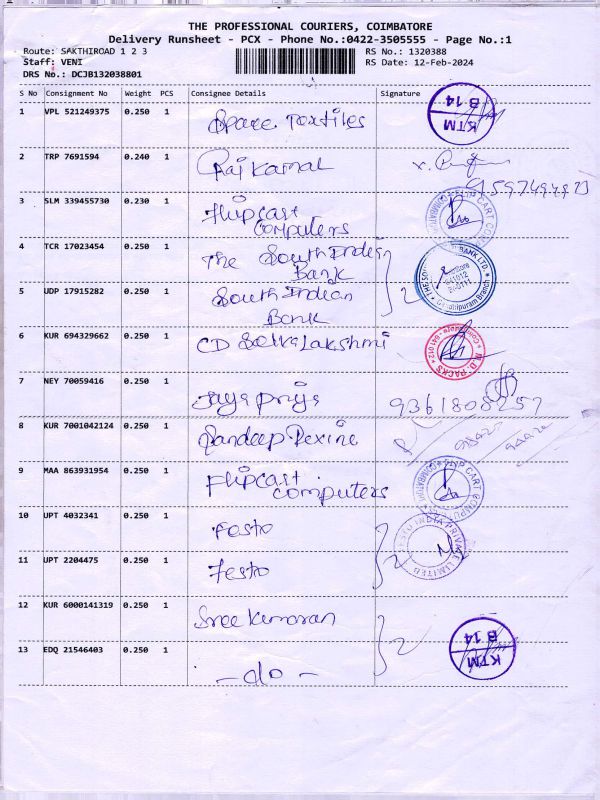 THE PROFESSIONAL COURIERS, COIMBATORE
Delivery Runsheet - PCX - Phone No.:0422-3505555 - Page No.:1
Route: SAKTHIROAD 1 2 3 RS No.: 1320388
Staff: VENI RS Date: 12-Feb-2024
DRS No.: DCJB132038801
S No Consignment No Weight PCS Consignee Details Signature
1 VPL 521249375 0.250 1 Space Textiles KTM B 14
2 TRP 7691594 0.240 1 Raj Kamal
3 SLM 339455730 0.230 1 Flipcart
Computers
4 TCR 17023454 0.250 1 The South Indian
Bank
5 UDP 17915282 0.250 1 South Indian
Bank
6 KUR 694329662 0.250 1 CD Selvalakshmi
7 NEY 70059416 0.250 1 Jayapriya 9361808257
8 KUR 7001042124 0.250 1 Sandeep Rexine
9 MAA 863931954 0.250 1 Flipcart
Computers
10 UPT 4032341 0.250 1 Festo
11 UPT 2204475 0.250 1 Festo
12 KUR 6000141319 0.250 1 Sree Kumaran
13 EDQ 21546403 0.250 1 - do - KTM B 14